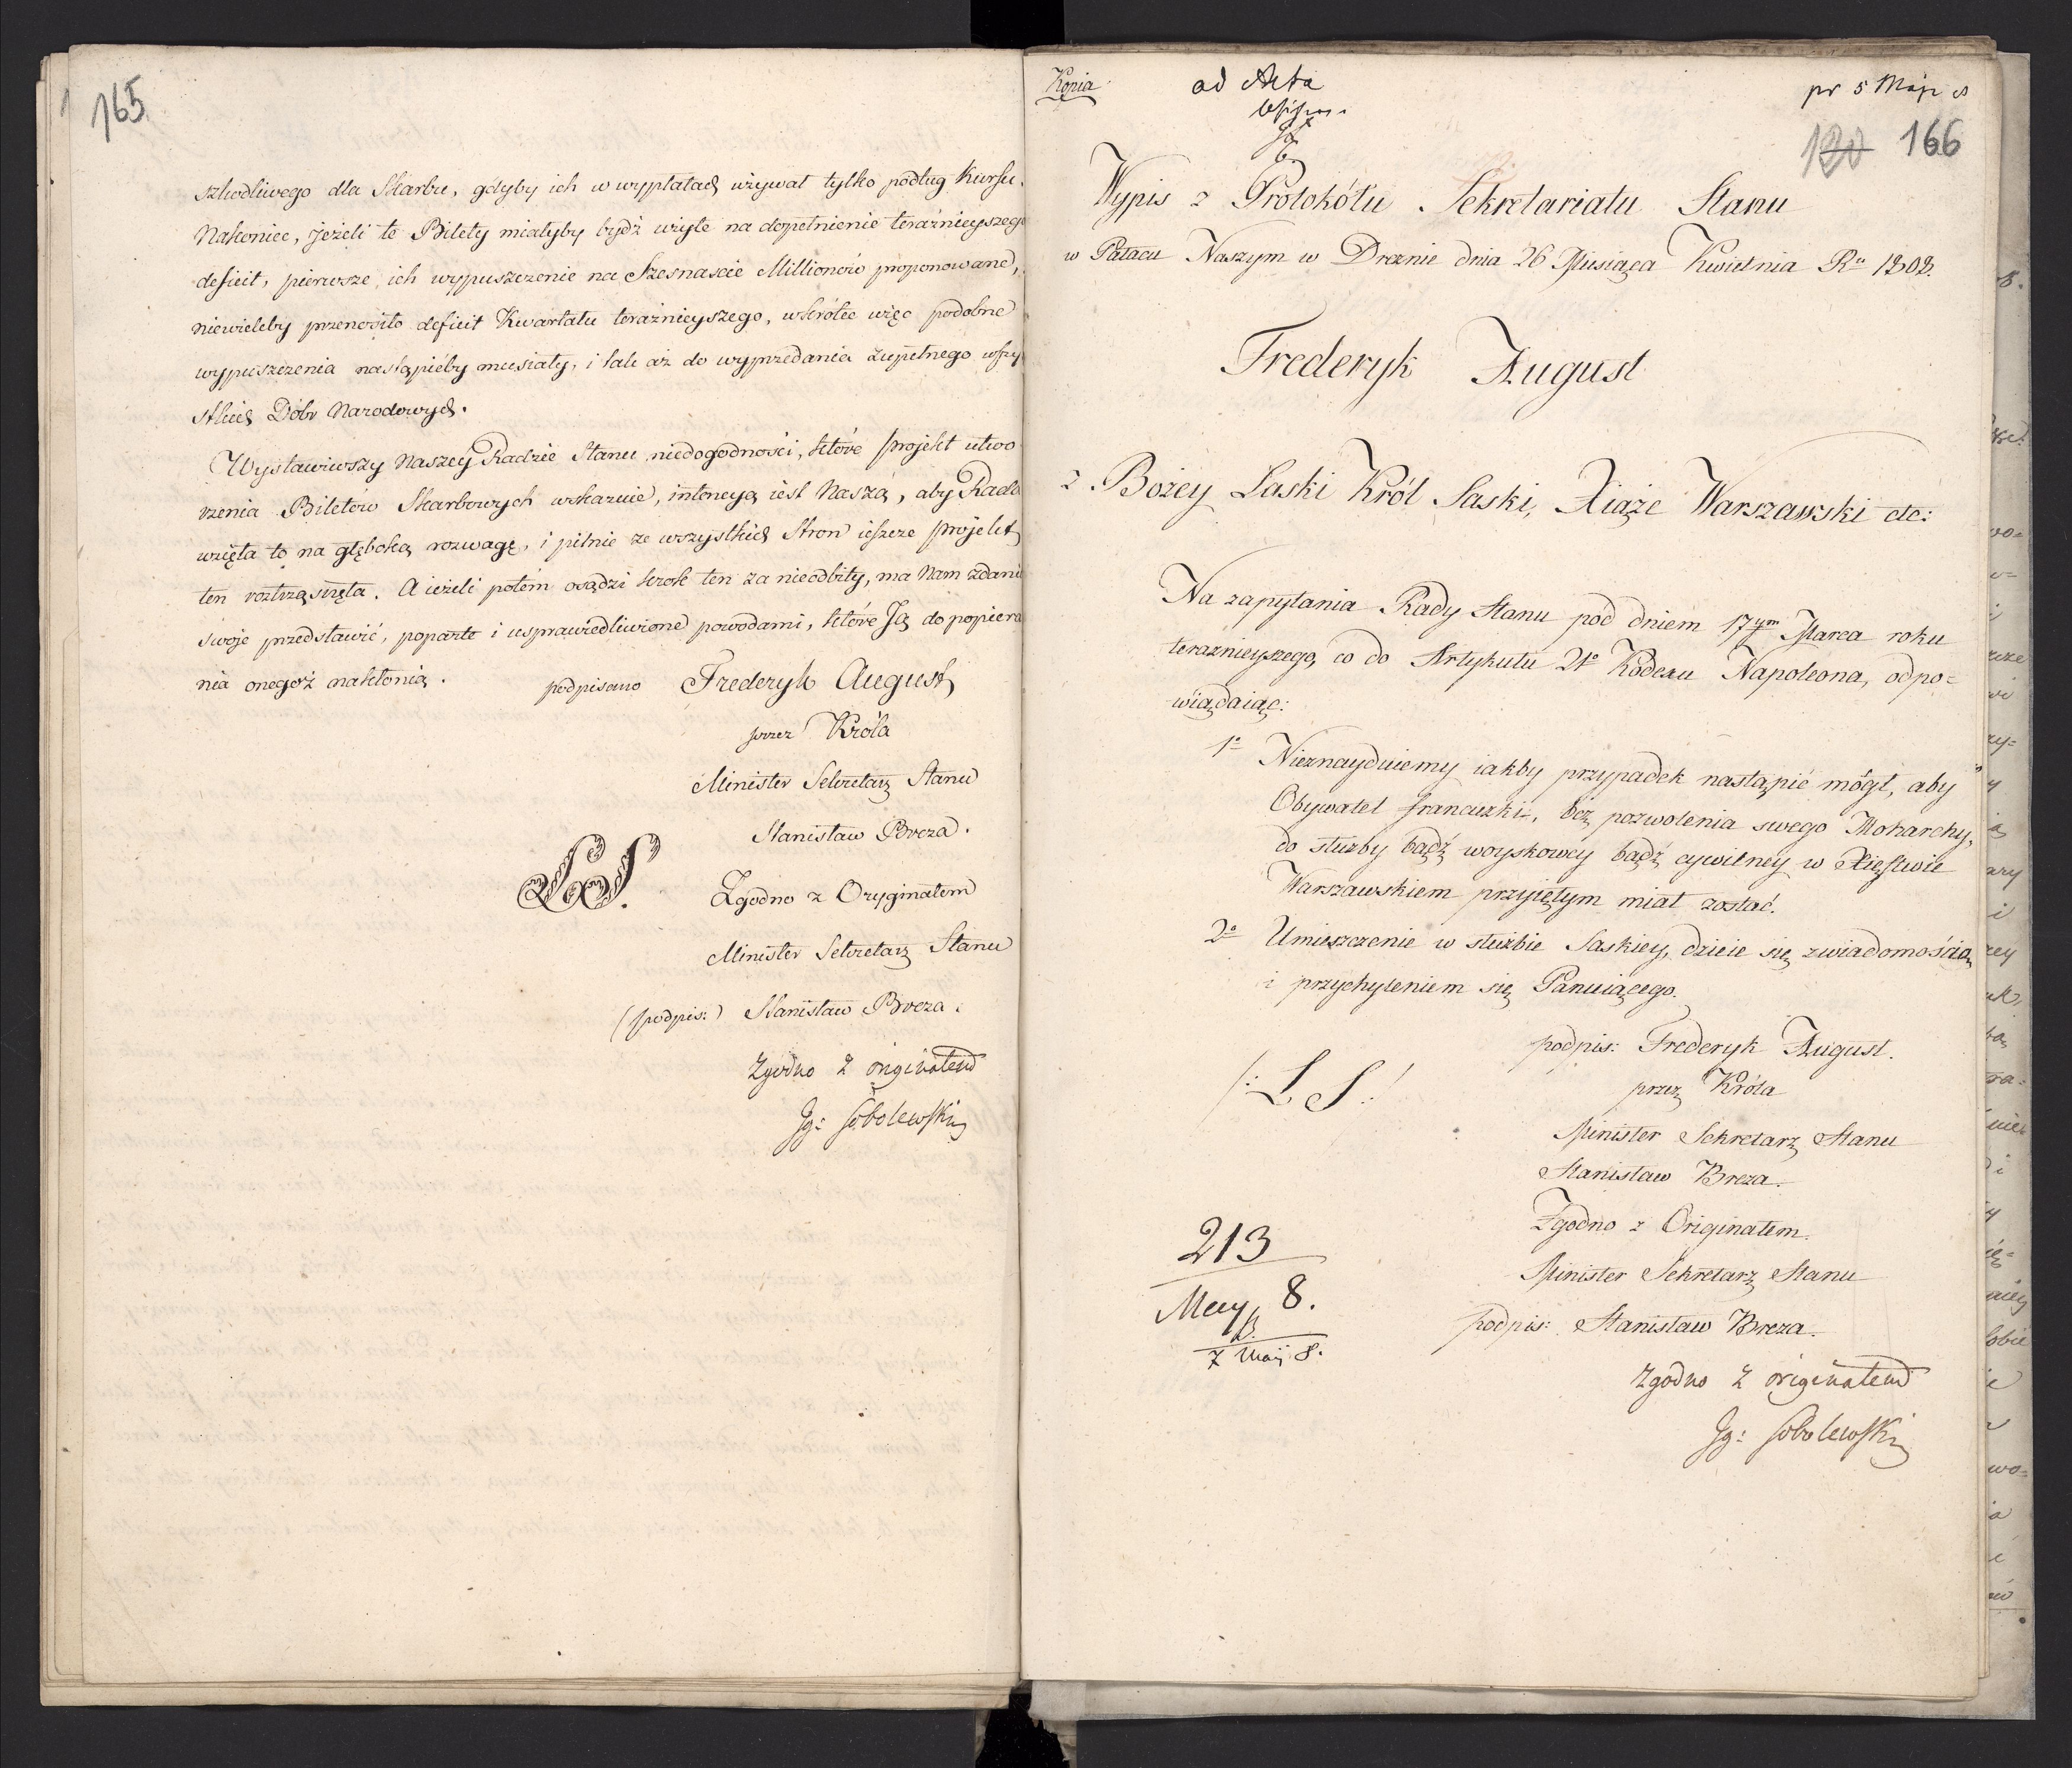 165
szkodliwego dla Skarbu, gdyby ich w wypłatach używał tylko podług Kursu.
Nakoniec, jeżeli te Bilety miałyby bydź użyte na dopełnienie teraźnieyszego
deficit, pierwsze ich wypuszczenie na Szesnaście Millionów proponowane,
niewieleby przenosiło deficit Kwartału teraźnieyszego, wkrótce więc podobne
wypuszczenia nastąpićby musiały, i tak aż do wyprzedania zupełnego wszy
stkich Dóbr Narodowych.
Wystawiwszy Naszey Radzie Stanu niedogodności, które projekt utwo
rzenia Biletów Skarbowych wskazuie, intencyą iest Naszą, aby Rada
wzięła to na głęboką rozwagę, i pilnie ze wszystkich Stron ieszcze projekt
ten roztrząsnęła. A ieżeli potém osądzi krok ten za nieodbity, ma Nam zdanie
swoje przedstawić, poparte i usprawiedliwione powodami, które Ją do popiera
nia onegoż nakłonią.
podpisano Frederyk August
przez Króla
Minister Sekretarz Stanu
Stanisław Breza.
LS.
Zgodno z Oryginałem
Minister Sekretarz Stanu
(podpis:) Stanisław Breza.
Zgodno z originałem
Ig: Sobolewski
Kopia
ad Acta
pr 5 Maji
130 166
Wypis z Protokółu Sekretariatu Stanu
w Pałacu Naszym w Dreznie dnia 26 Miesiąca Kwietnia Ru 1808.
Frederyk August
z Bożey Łaski Król Saski, Xiąże Warszawski etc:
Na zapytania Rady Stanu pod dniem 17ym Marca roku
teraznieyszego, co do Artykułu 21o Kodexu Napoleona, odpo=
wiądaiąc:
1o Nieznayduiemy iakby przypadek nastąpić mógł, aby
Obywatel francuzki, bez pozwolenia swego Monarchy,
do służby bądź woyskowey bądź cywilney w Xięstwie
Warszawskiem przyiętym miał zostać.
2o Umieszczenie w służbie Saskiey, dzieie się z wiadomością
i przychyleniem się Panuiącego.
podpis: Frederyk August.
/: L S :/
przez Króla
Minister Sekretarz Stanu
Stanisław Breza.
Zgodno z Originałem.
Minister Sekretarz Stanu
podpis: Stanisław Breza.
213
May 8.
7 Maij 8.
Zgodno z originałem
Ig: Sobolewski